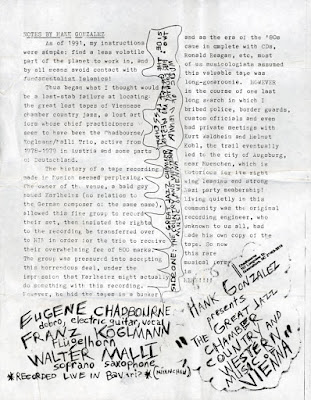 NOTES BY HANK GONZALEZ
As of 1991, my instructions
were simple: find a less volatile
part of the planet to work in, and
by all means avoid contact with
Fundamentalist Islamics!
Thus began what I thought would
be a last-stab failure at locating
the great lost tapes of Viennese
chamber country jazz, a lost art
form whose chief practitioners
seem to have been the Chadbourne/
Koglmann/Malli Trio, active from
1978-1979 in Austria and some parts
of Deutschland.
The history of a tape recording
made in Munich seemed perplexing.
The owner of the venue, a bald guy
named Farlheims (no relation to
the German composer of the same name)
allowed this fine group to record
their set, then insisted the rights
to the recording be transferred over
to HIM in order for the trio to receive
their overwhelming fee of 800 marks.
The group was pressured into accepting
this horrendous deal, under the
impression that Farlheims might actually
do something with this recording.
However, he hid the tapes in a bunker
and so the era of the '80s
came in complete with CDs,
Ronald Reagan, etc, most
of us musicologists assumed
this valuable tape was
long-goneronie. HOWEVER
in the course of one last
long search in which I
bribed police, border guards,
customs officials and even
had private meetings with
Kurt Waldheim and Helmut
Kohl, the trail eventually
led to the city of Augsburg,
near Muenchen, which is
notorious for its right
wing leanings and strong
Nazi party membership!
Living quietly in this
community was the original
recording engineer, who
unknown to us all, had
made his own copy of the
tape. So now
this rare
musical jerry
is
EUGENE CHADBOURNE
dobro, electric guitar, vocal
FRANZ KOGLMANN
Flügelhorn
WALTER MALLI
soprano saxophone
*RECORDED LIVE IN BAVARIA (MÜNCHEN) *
HANK GONZALEZ
presents
"THE GREAT JAZZ
CHAMBER
COUNTRY AND
WESTERN
MUSIC OF
VIENNA"